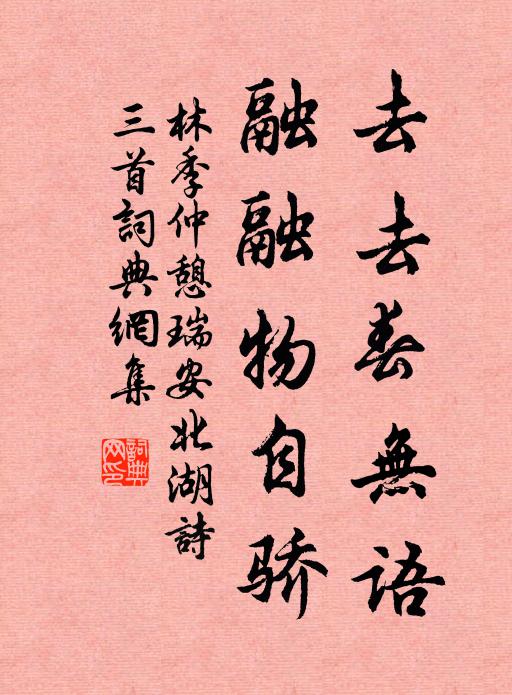 去去春無語
融融物自骄
林季仲憩瑞安北湖詩
三首詞典網集
詞典網印